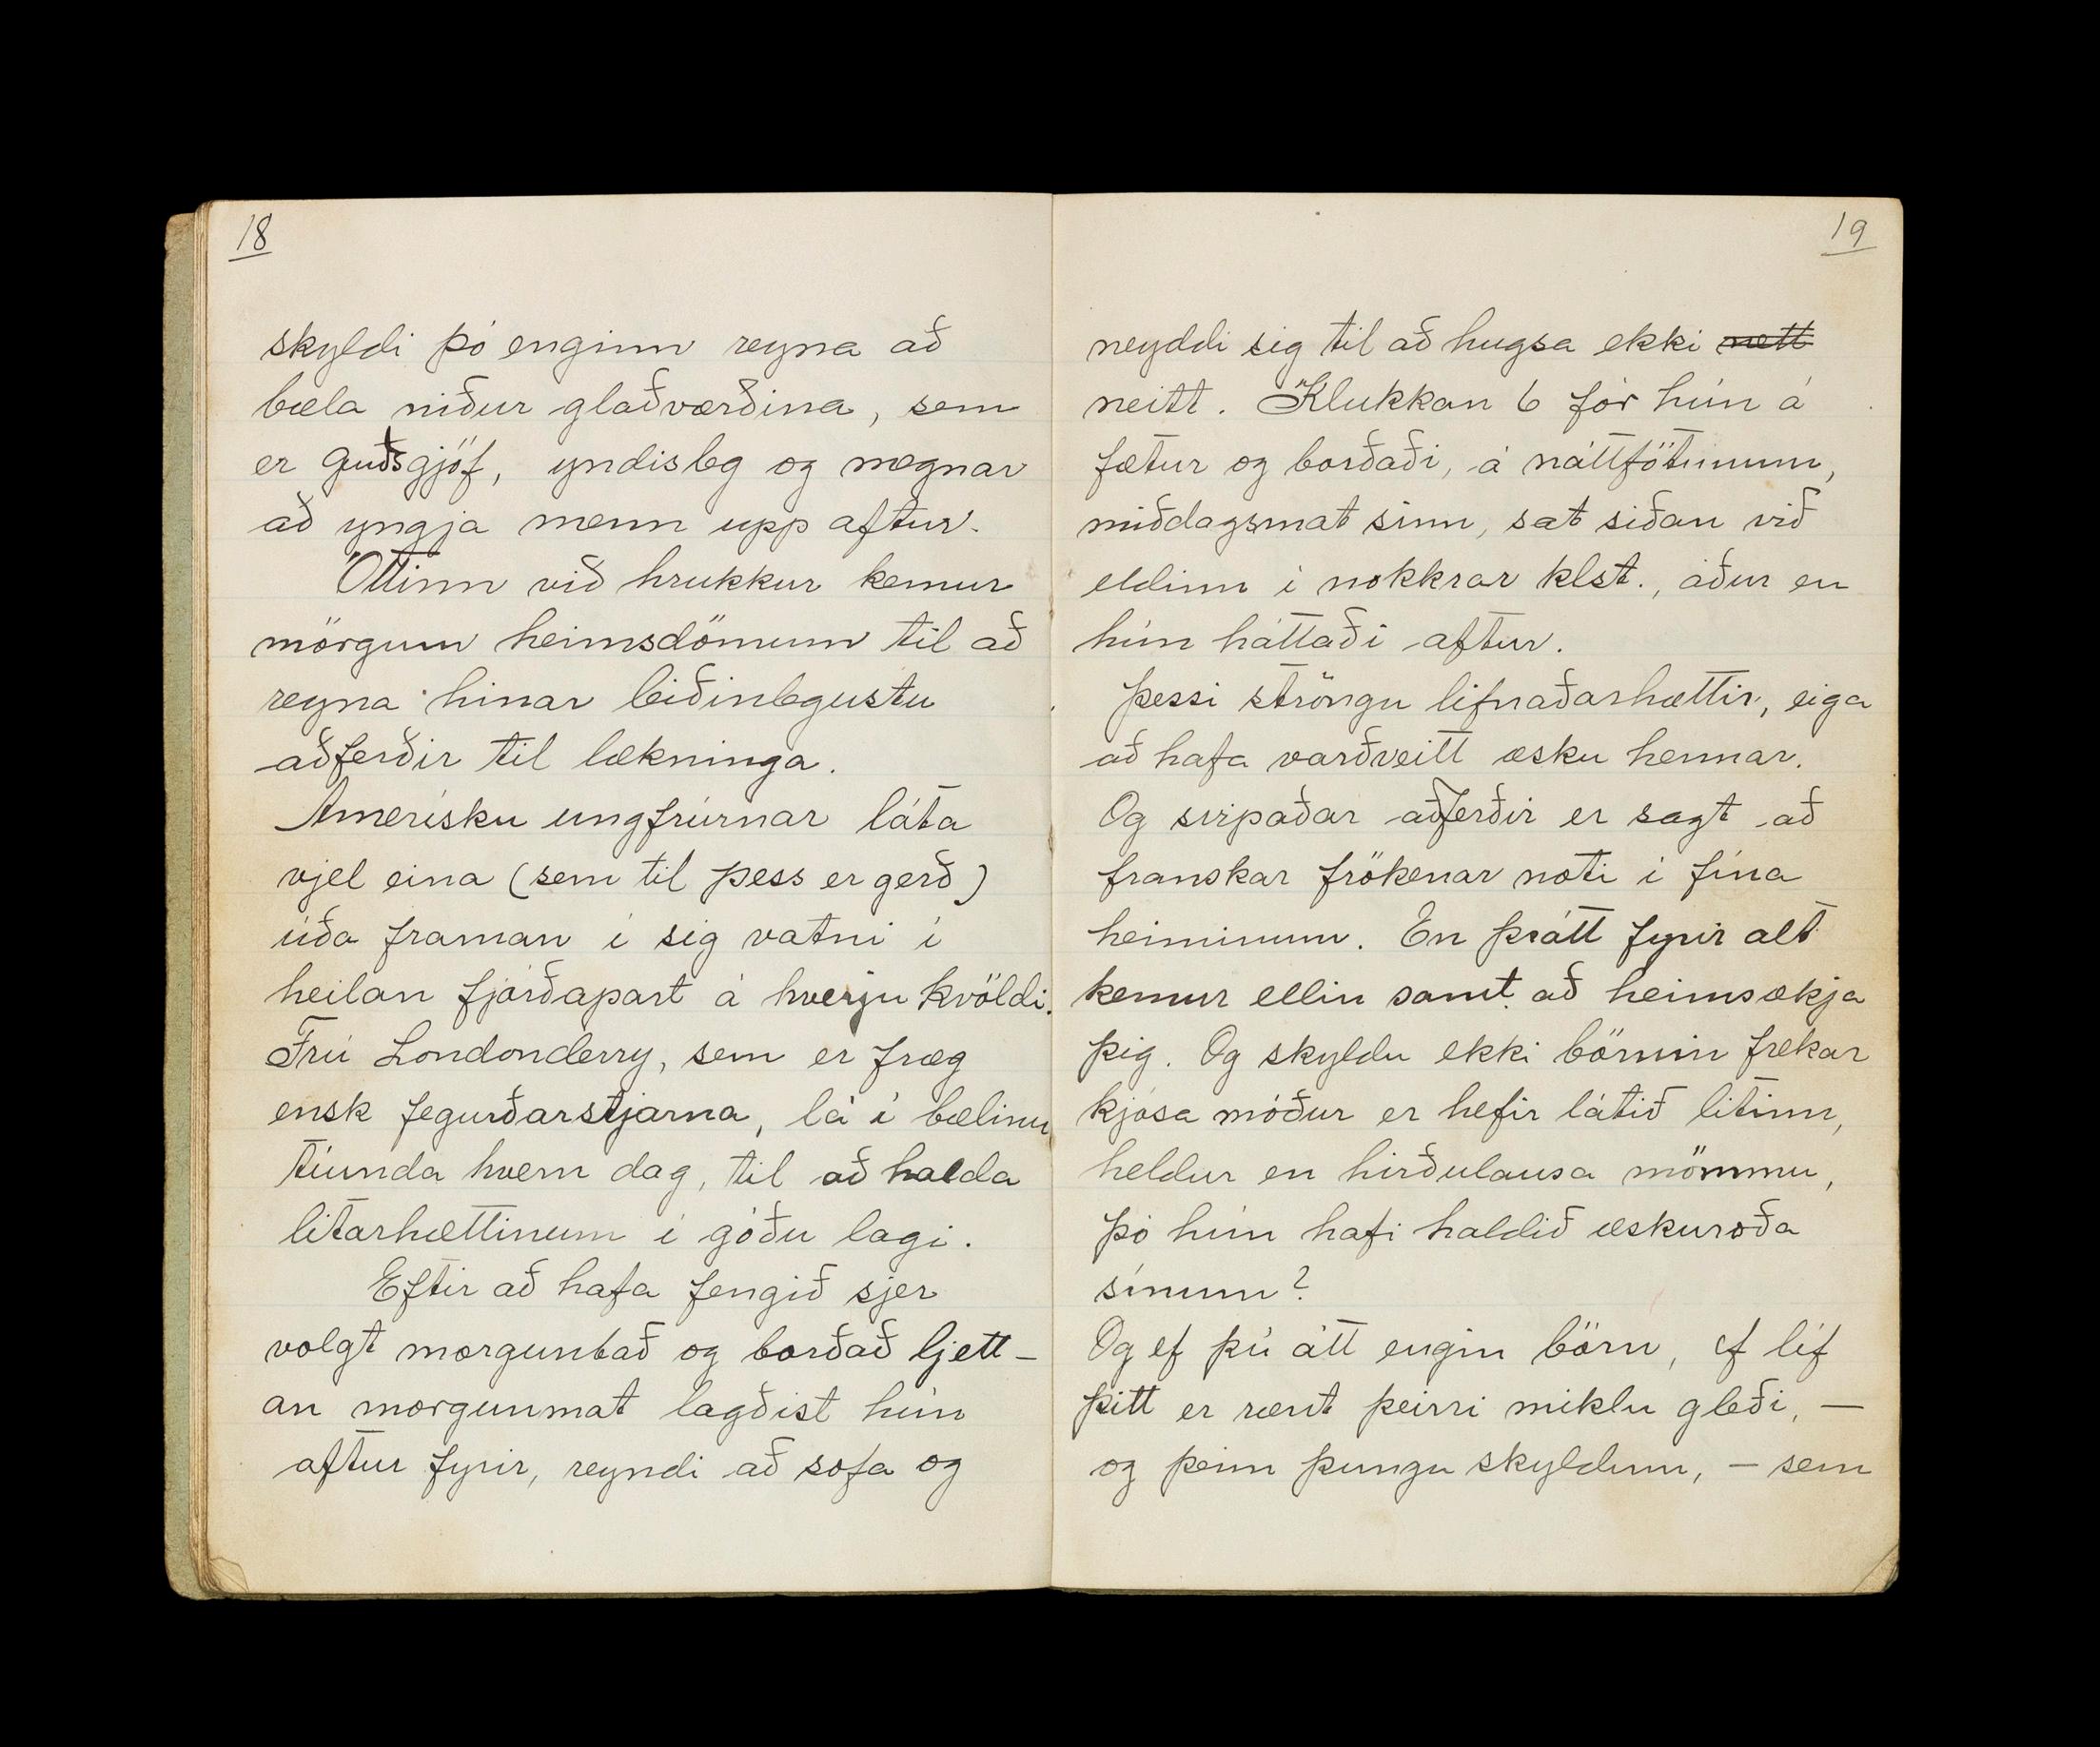 18
skyldi þó enginn reyna að
bæla niður glaðværðina, sem
er guðsgjöf, yndisleg og megnar
að yngja menn upp aftur.
Óttinn við hrukkur kemur
mörgum heimsdömum til að
reyna hinar leiðinlegustu
aðferðir til lækninga.
Amerísku ungfrúrnar láta
vjel eina (sem til þess er gerð)
úða framan í sig vatni í
heilan fjórðapart á hverju kvöldi.
Frú Londonderry, sem er fræg
ensk fegurðarstjarna, lá í bælinu
tíunda hvern dag, til að halda
litarhættinum í góðu lagi.
Eftir að hafa fengið sjer
volgt morgunbað og borðað ljett-
an morgunmat lagðist hún
aftur fyrir, reyndi að sofa og
19
neyddi sig til að hugsa ekki nett
neitt. Klukkan 6 fór hún á
fætur og borðaði, á náttfötunum,
miðdagsmat sinn, sat síðan við
eldinn í nokkrar klst., áður en
hún háttaði aftur.
Þessi ströngu lifnaðarhættir, eiga
að hafa varðveitt æsku hennar.
Og svipaðar aðferðir er sagt að
franskar frökenar noti í fína
heiminum. En þrátt fyrir alt
kemur ellin samt að heimsækja
þig. Og skyldu ekki börnin frekar
kjósa móður er hefir látið litinn,
heldur en hirðulausa mömmu,
þó hún hafi haldið æskuroða
sínum?
Og ef þú átt engin börn, ef líf
þitt er rænt þeirri miklu gleði, —
og þeim þungu skyldum, — sem